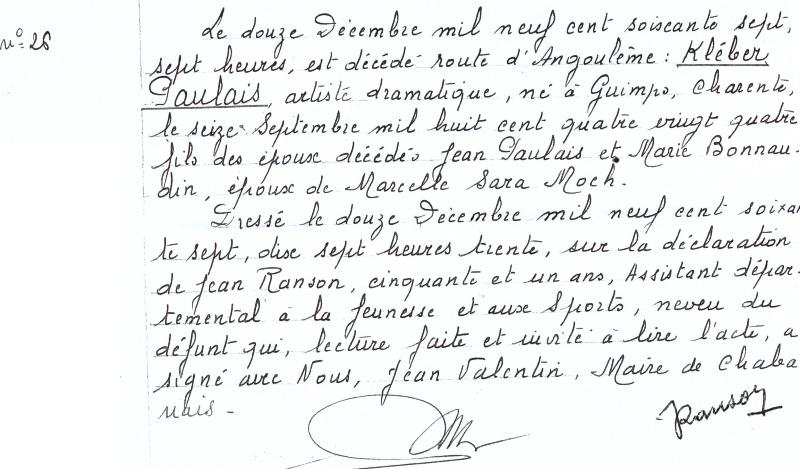 Nº 26
Le douze Décembre mil neuf cent soixante sept,
sept heures, est décédé route d'Angoulême : Kléber
Gaulais, artiste dramatique, né à Guimps, Charente,
le seize Septembre mil huit cent quatre vingt quatre
fils des époux décédés Jean Gaulais et Marie Bonnau-
din, époux de Marcelle Sara Moch.
Dressé le douze Décembre mil neuf cent soixan
te sept, dix sept heures trente, sur la déclaration
de Jean Ranson, cinquante et un ans, Assistant dépar-
temental à la Jeunesse et aux Sports, neveu du
défunt qui, lecture faite et invité à lire l'acte, a
signé avec Nous, Jean Valentin, Maire de Chaba
nais -
Ranson